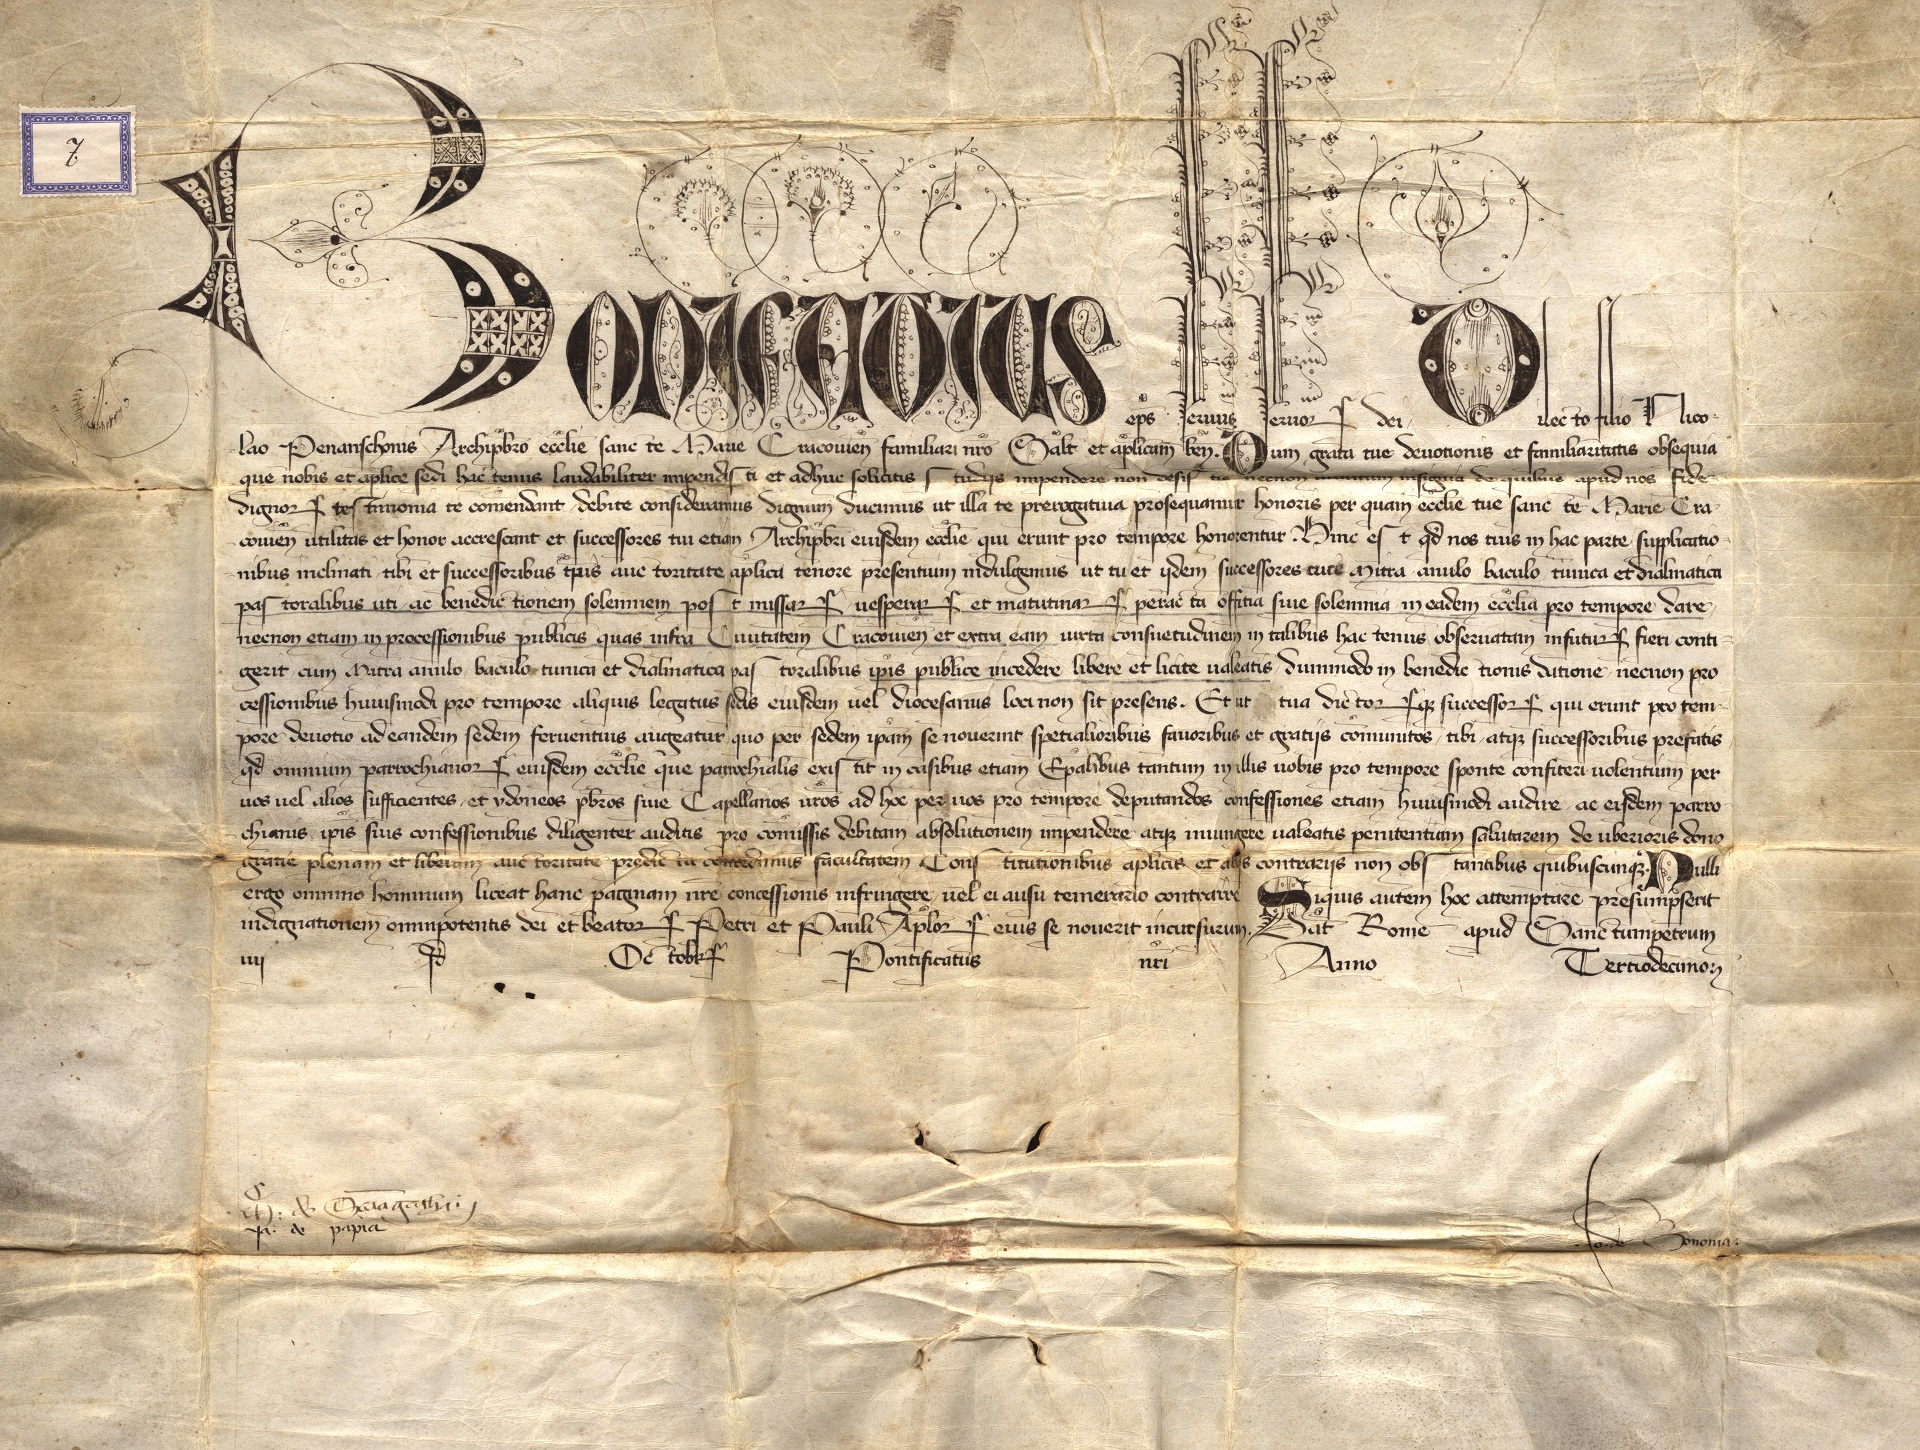 7
Bonifatius eps servus servor dei. Dilecto filio Nico-
lao Penanschonis Archipbro ecclie sancte Marie Cracovien familiari nro Salt et aplicam ben. Cum grata tue devotionis et familiaritatis obsequia
que nobis et aplice sedi hactenus laudabiliter impendisti et adhuc solicitis studiis impendere non desistis necnon insignia de quibus apud nos fide
dignor testimonia te comendant debite consideramus dignum ducimus ut illa te prerogativa prosequamur honoris per quam ecclie tue sancte Marie Cra-
covien utilitas et honor accrescant et successores tui etiam Archipbri eiusdem ecclie qui erunt pro tempore honorentur. Hinc est qd nos tuis in hac parte supplicatio-
nibus inclinati tibi et successoribus auctoritate aplica tenore presentium indulgemus ut tu et iidem successores Mitra anulo baculo tunica et dialmatica
pastoralibus uti ac benedictionem solemnem post missar vesperar et matutinar peracta offitia sive solemnia in eadem ecclia pro tempore dare
necnon etiam in processionibus publicis quas infra Civitatem Cracovien et extra eam iuxta consuetudinem in talibus hactenus observatam in futur fieri conti-
gerit cum Mitra anulo baculo tunica et dialmatica pastoralibus ipis publice incedere libere et licite valeatis dummodo in benedictionis datione necnon pro
cessionibus huiusmodi pro tempore aliquis legatus sedis eiusdem vel diocesanus loci non sit presens. Et ut tua dictorque successor qui erunt pro tem-
pore devotio ad eandem sedem ferventius augeatur quo per sedem ipam se noverint spetialioribus favoribus et gratiis comunitos tibi atq successoribus prefatis
qd omnium parrochianor eiusdem ecclie que parrochialis existit in casibus etiam Epalibus tantum in illis vobis pro tempore sponte confiteri volentium per
vos vel alios sufficientes et ydoneos pbros sive Capellanos vros ad hoc per vos pro tempore deputandos confessiones etiam huiusmodi audire ac eisdem parro
chianis ipis suis confessionibus diligenter auditis pro comissis debitam absolutionem impendere atq iniungere valeatis penitentiam salutarem de uberioris dono
gratie plenam et liberam auctoritate predicta concedimus facultatem Constitutionibus aplicis et aliis contrariis non obstantibus quibuscunq. Nulli
ergo omnino hominum liceat hanc paginam nre concessionis infringere vel ei ausu temerario contraire Siquis autem hoc attemptare presumpserit
indignationem omnipotentis dei et beator Petri et Pauli Aplor eius se noverit incursurum. Dat Rome apud Sanctumpetrum
iiij Id Octobr Pontificatus nri Anno Tertiodecimo
de
de papia
Jo. de Bononia